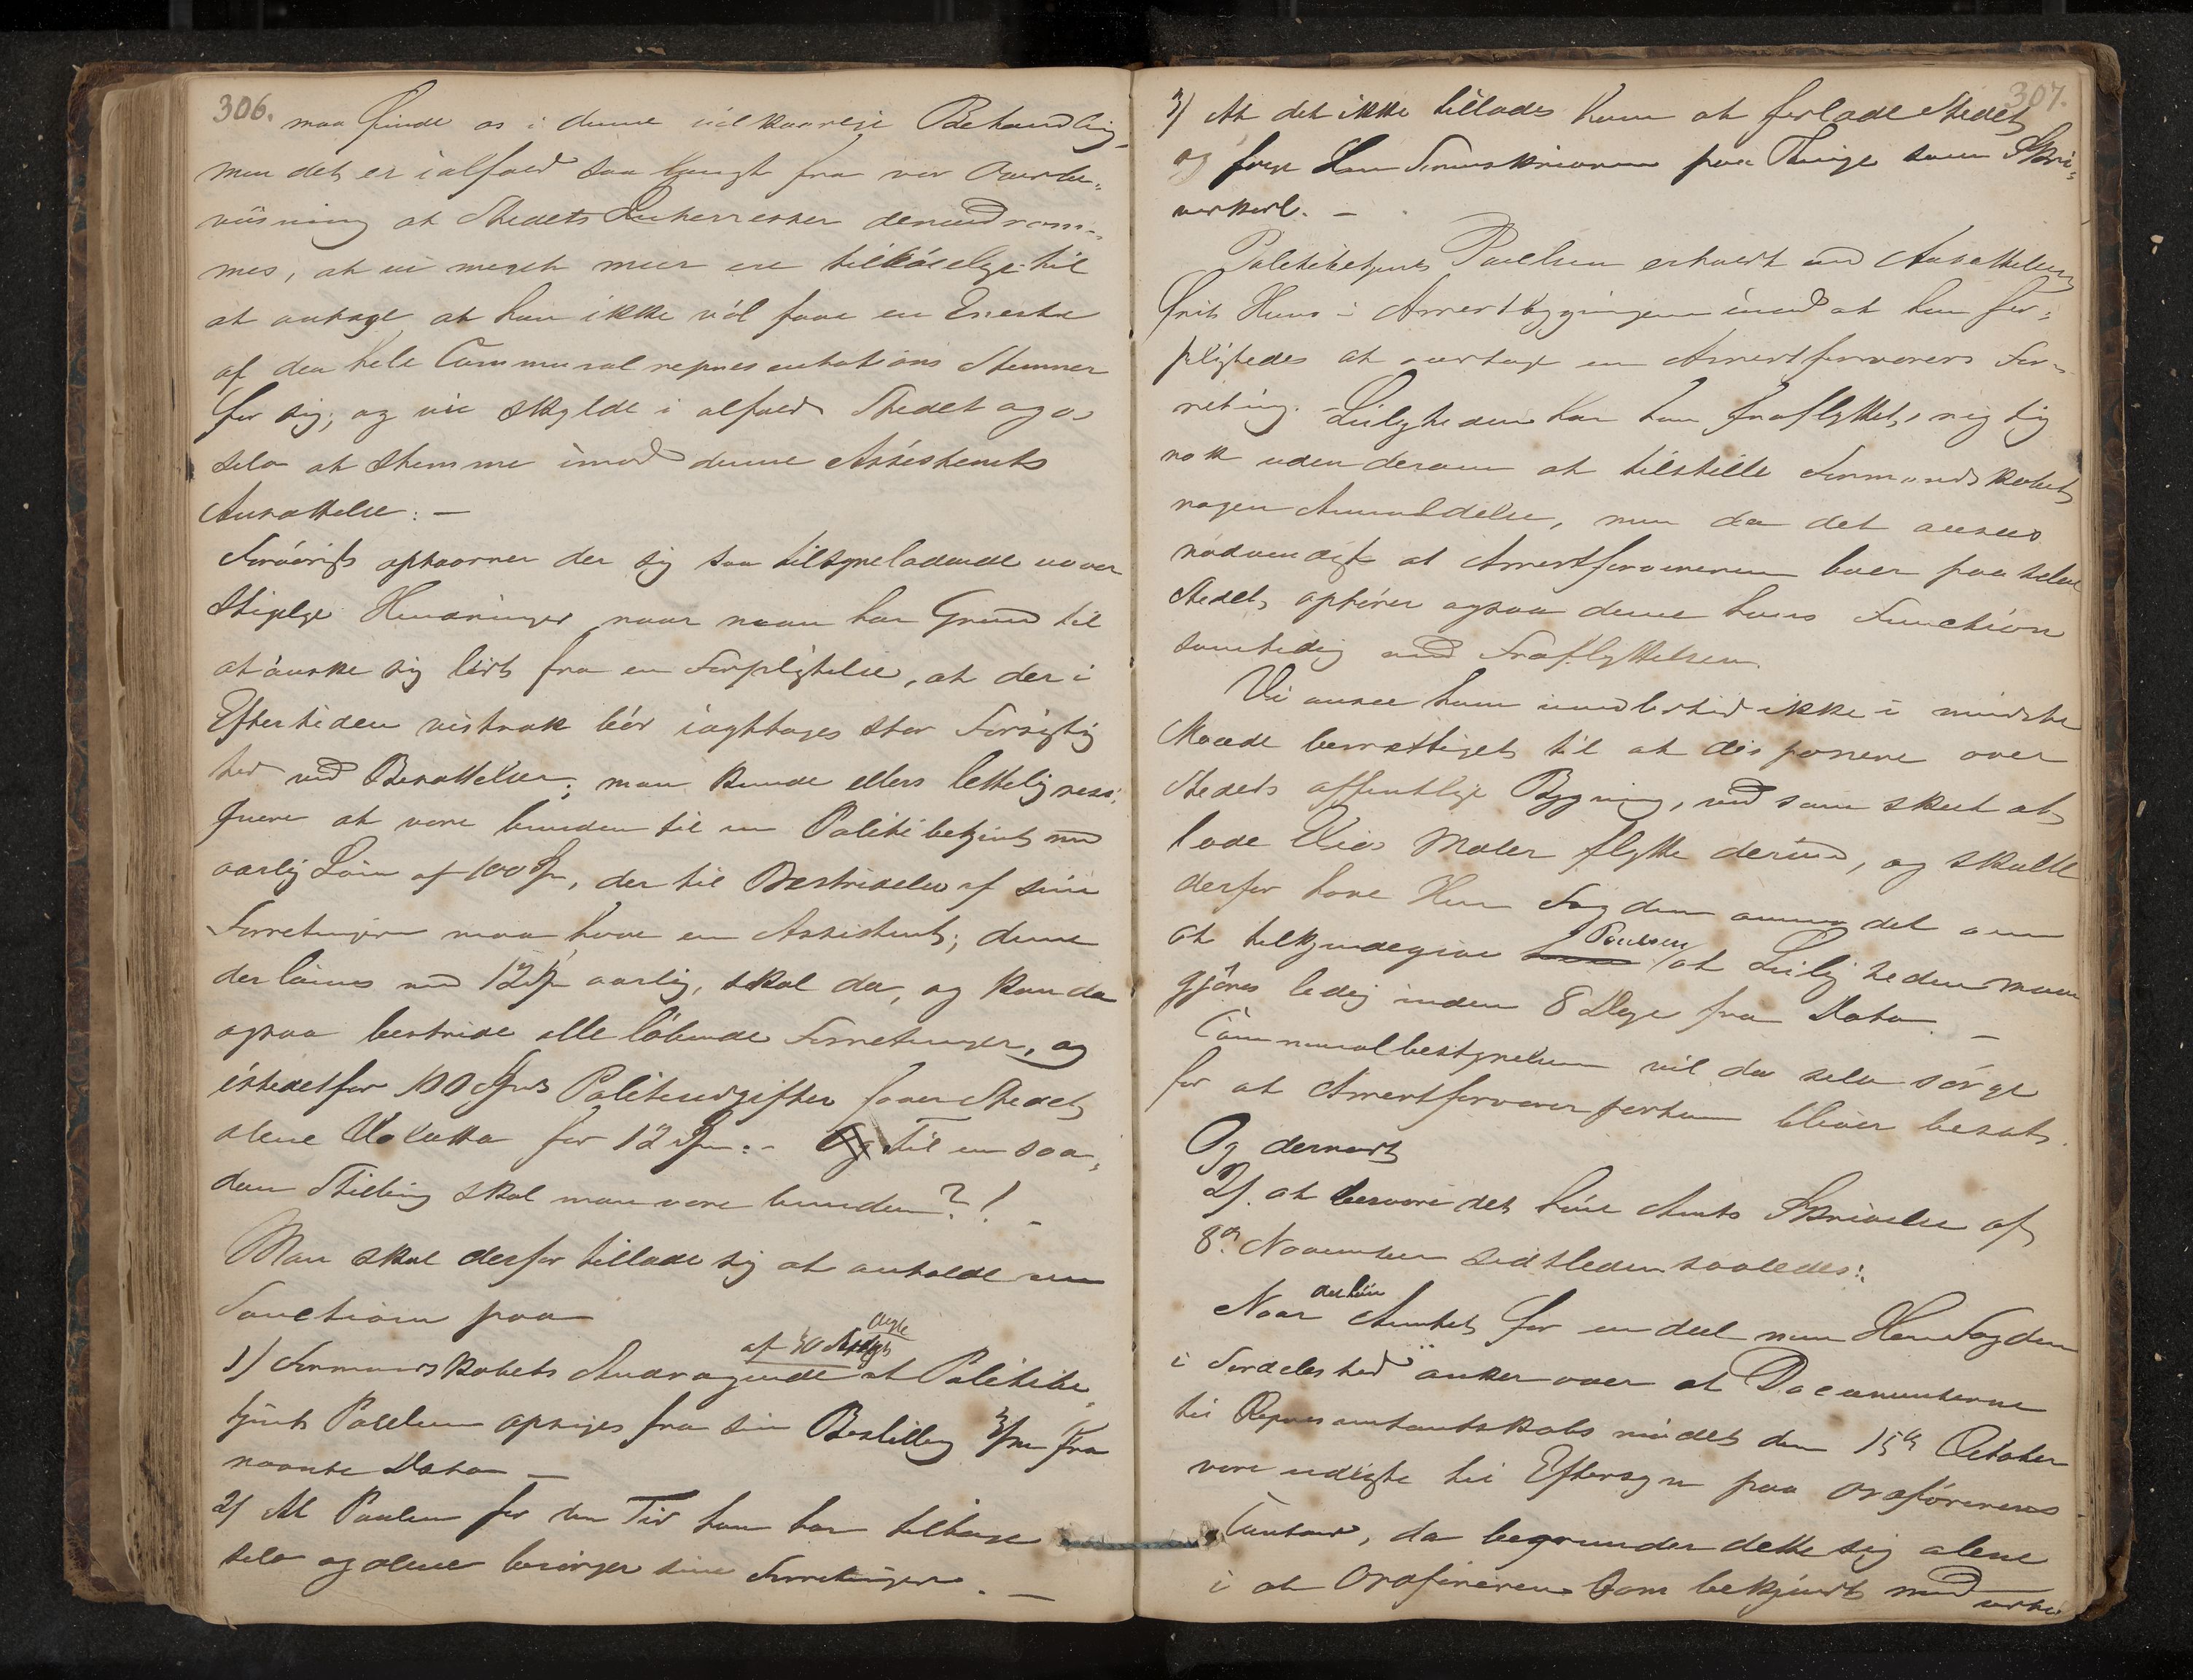 306.
maa finde os i denne vilkaarlige Behandling
men det er ialfald saa langt fra vor Overbe-
viisning at Stedets Interesser derved frem-
mes, at vi meget meer ere tilböielige til
at antage at han ikke vil faae en Eneste
af den hele Communalrepræsentations Stemmer
for sig; og vi skylde i alfald Stedet og os
selv at stemme imod denne Assistents
Ansættelse: —
Forövrigt optaarner der sig saa tilsyneladende uover
stigelige Hindringer naar man har Grund til
at önske sig löst fra en Forpligtelse, at der i
Eftertiden vistnok bör iagttages stor Forsigtig
hed ved Besættelser; man kunde ellers lettelig resi-
gnere at være bunden til en Politibetjent med
aarlig Lön af 100 Sp, der til Bestridelse af sine
Forretninger maa have en Assistent; denne
der lönnes med 12 Sp aarlig, skal da, og kan da
ogsaa bestride alle löbende Forretninger, og
istedetfor 100 Spds Politiudgifter faaer Stedet
alene Valutta for 12 Sp: - Og Til en saa-
dan Stilling skal man være bunden?! -
Man skal derfor tillade sig at anholde om
Sanction paa
1) Formandskabets Andragende af 30 Augt at Politibe-
tjent Paulsen opsiges fra sin Bestilling 3/m fra
nævnte Dato —
2) At Paulsen for den Tid han har tilbage
selv og alene besörger sine Forretninger. —
307.
3) At det ikke tillades ham at forlade Stedet
og fölge Herr Sorenskriveren paa Thinge som Skri-
verkarl. —
Politibetjent Paulsen erholdt ved Ansættelsen
frit Huus i Arrestbygningen imod at han for-
pligtedes at overtage en Arrestforvarers For-
retning. Leiligheden har han fraflyttet, rigtig
nok uden derom at tilstille Formandskabet
nogen Anmeldelse, men da det ansees
nödvendigt at Arrestforvareren boer paa selve
Stedet, ophörer ogsaa denne hans Function
samtidig med Fraflyttelsen.
Vi ansee ham imidlertid ikke i mindste
Maade berettiget til at disponere over
Stedets offentlige Bygning, ved som skeet at
lade Maler flytte derind, og skulde
derfor have Herr Fogden anmodet om
at tilkjendegive Paulsen at Leiligheden maa
gjöres ledig inden 8 Dage fra Dato. —
Communalbestyrelsen vil da selv sörge
for at Arrestforvarerposten bliver besat.
Og dernæst
2). at besvare det höie Amts Skrivelse af
8de November sidstleden saaledes:
Naar det höie Amtet for en deel men Herr Fogden
i Særdeleshed anker over at Documenterne
til Repræsentantskabsmödet den 15de October
vare udlagte til Eftersyn paa Ordförerens
Contoir, da begrunder dette sig alene
i at Ordföreren som bekjendt med